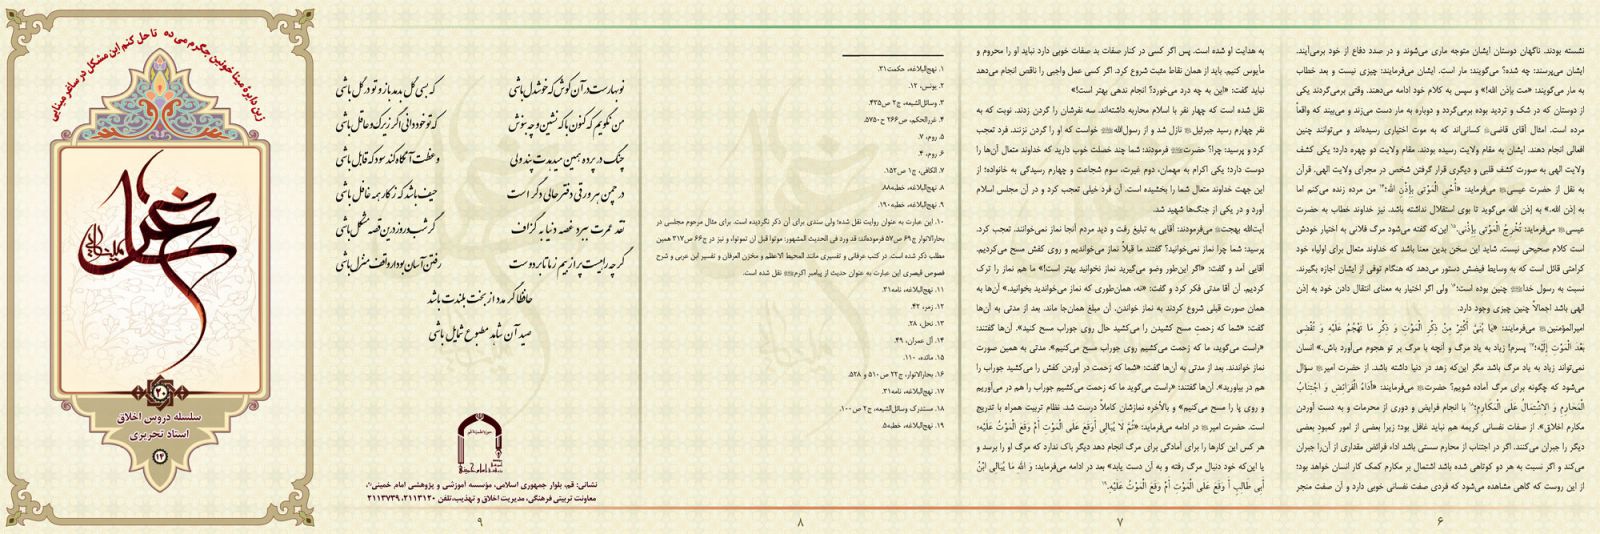 زین دایرهٔ مینا خونین جگرم می ده تا حل کنم این مشکل در ساغر مینایی
غزل
۲۰
سلسله دروس اخلاق
استاد تحریری
۱۴
نشسته بودند. ناگهان دوستان ایشان متوجه ماری می‌شوند و در صدد دفاع از خود برمی‌آیند.
ایشان می‌پرسند: چه شده؟ می‌گویند: مار است. ایشان می‌فرمایند: چیزی نیست و بعد خطاب
به مار می‌گویند: «مت بإذن الله!» و سپس به کلام خود ادامه می‌دهند. وقتی برمی‌گردند یکی
از دوستان که در شک و تردید بوده برمی‌گردد و دوباره به مار دست می‌زند و می‌بیند که واقعاً
مرده است. امثال آقای قاضی کسانی‌اند که به موت اختیاری رسیده‌اند و می‌توانند چنین
افعالی انجام دهند. ایشان به مقام ولایت رسیده بودند. مقام ولایت دو چهره دارد؛ یکی کشف
ولایت الهی به صورت کشف قلبی و دیگری قرار گرفتن شخص در مجرای ولایت الهی. قرآن
به نقل از حضرت عیسی می‌فرماید: «أُحْیِ الْمَوْتی بِإِذْنِ الله؛ من مرده زنده می‌کنم اما
به إذن الله.» به إذن الله می‌گوید تا بوی استقلال نداشته باشد. نیز خداوند خطاب به حضرت
عیسی می‌فرماید: تُخْرِجُ الْمَوْتی بِإِذْنی. این‌که گفته می‌شود مرگ فلانی به اختیار خودش
است کلام صحیحی نیست. شاید این سخن بدین معنا باشد که خداوند متعال برای اولیاء خود
کراماتی قائل است که به وسایط فیضش دستور می‌دهد که هنگام توفی از ایشان اجازه بگیرند.
نسبت به رسول خدا چنین بوده است؛ ولی اگر اختیار به معنای انتقال دادن خود به إذن
الهی باشد اجمالاً چنین چیزی وجود دارد.
امیرالمؤمنین می‌فرمایند: «یَا بُنَیَّ أَکْثِرْ مِنْ ذِکْرِ الْمَوْتِ وَ ذِکْرِ مَا تَهْجُمُ عَلَیْهِ وَ تُفْضی
بَعْدَ الْمَوْتِ إِلَیْهِ؛ پسرم! زیاد به یاد مرگ و آنچه با مرگ بر تو هجوم می‌آورد باش.» انسان
نمی‌تواند زیاد به یاد مرگ باشد مگر این‌که زهد در دنیا داشته باشد. از حضرت امیر سؤال
می‌شود که چگونه برای مرگ آماده شویم؟ حضرت می‌فرمایند: «أَدَاءُ الْفَرَائِضِ وَ اجْتِنَابُ
الْمَحَارِمِ وَ الِاشْتِمَالُ عَلَی الْمَکَارِمِ؛ با انجام فرایض و دوری از محرمات و به دست آوردن
مکارم اخلاق». از صفات نفسانی کریمه هم نباید غافل بود؛ زیرا بعضی از امور کمبود بعضی
دیگر را جبران می‌کنند. اگر در اجتناب از محارم سستی باشد اداء فرائض مقداری از آن‌را جبران
می‌کند و اگر نسبت به هر دو کوتاهی شده باشد اشتمال بر مکارم کمک کار انسان خواهد بود؛
از این روست که گاهی مشاهده می‌شود که فردی صفت نفسانی خوبی دارد و آن صفت منجر
۶
به هدایت او شده است. پس اگر کسی در کنار صفات بد صفات خوبی دارد نباید او را محروم و
مأیوس کنیم. باید از همان نقاط مثبت شروع کرد. اگر کسی عمل واجبی را ناقص انجام می‌دهد
نباید گفت: «این به چه درد می‌خورد؟ انجام ندهی بهتر است!»
نقل شده است که چهار نفر با اسلام محاربه داشته‌اند. سه نفرشان را گردن زدند. نوبت که به
نفر چهارم رسید جبرئیل نازل شد و از رسول‌الله خواست که او را گردن نزنند. فرد تعجب
کرد و پرسید: چرا؟ حضرت فرمودند: شما چند خصلت خوب دارید که خداوند متعال آن‌ها را
دوست دارد؛ یکی اکرام به مهمان، دوم غیرت، سوم شجاعت و چهارم رسیدگی به خانواده؛ از
این جهت خداوند متعال شما را بخشیده است. آن فرد خیلی تعجب کرد و در آن مجلس اسلام
آورد و در یکی از جنگ‌ها شهید شد.
آیت‌الله بهجت می‌فرمودند: آقایی به تبلیغ رفت و دید مردم آنجا نماز نمی‌خوانند. تعجب کرد.
پرسید: شما چرا نماز نمی‌خوانید؟ گفتند ما قبلاً نماز می‌خواندیم و روی کفش مسح می‌کردیم.
آقایی آمد و گفت: «اگر این‌طور وضو می‌گیرید نماز نخوانید بهتر است!» ما هم نماز را ترک
کردیم. آن آقا مدتی فکر کرد و گفت: «نه، همان‌طوری که نماز می‌خواندید بخوانید.» آن‌ها به
همان صورت قبلی شروع کردند به نماز خواندن. آن مبلغ همان‌جا ماند. بعد از مدتی به آن‌ها
گفت: «شما که زحمت مسح کشیدن را می‌کشید حال روی جوراب مسح کنید». آن‌ها گفتند:
«راست می‌گوید، ما که زحمت می‌کشیم روی جوراب مسح می‌کنیم». مدتی به همین صورت
نماز خواندند. بعد از مدتی به آن‌ها گفت: «شما که زحمت در آوردن کفش را می‌کشید جوراب را
هم در بیاورید». آن‌ها گفتند: «راست می‌گوید ما که زحمت می‌کشیم جوراب را هم در می‌آوریم
و روی پا را مسح می‌کنیم» و بالأخره نمازشان کاملاً درست شد. نظام تربیت همراه با تدریج
است. حضرت امیر در ادامه می‌فرماید: «ثُمَّ لَا یُبَالِی أَوَقَعَ عَلَی الْمَوْتِ أَمْ وَقَعَ الْمَوْتُ عَلَیْهِ؛
هر کس این کارها را برای آمادگی برای مرگ انجام دهد دیگر باک ندارد که مرگ او را برسد و
یا این‌که خود دنبال مرگ رفته و به آن دست یابد» بعد در ادامه می‌فرماید: وَ اللهِ مَا یُبَالِی ابْنُ
أَبِی طَالِبٍ أَ وَقَعَ عَلَی الْمَوْتِ أَمْ وَقَعَ الْمَوْتُ عَلَیْهِ.
۷
۱. نهج‌البلاغه، حکمت۳۱.
۲. یونس، ۱۲.
۳. وسائل‌الشیعه، ج۲ ص۴۳۵.
۴. غررالحکم، ص۲۶۶ ح۵۷۵۰.
۵. روم، ۷.
۶. روم، ۴.
۷. الکافی، ج۱ ص۱۵۲.
۸. نهج‌البلاغه، خطبه۸۸.
۹. نهج‌البلاغه، خطبه۱۹۰.
۱۰. این عبارت به عنوان روایت نقل شده؛ ولی سندی برای آن ذکر نگردیده است. برای مثال مرحوم مجلسی در
بحارالانوار ج۶۹ ص۵۷ فرموده‌اند: قد ورد فی الحدیث المشهور: موتوا قبل أن تموتوا، و نیز در ج۶۶ ص۳۱۷ همین
مطلب ذکر شده است. در کتب عرفانی و تفسیری مانند المحیط الاعظم و مخزن العرفان و تفسیر ابن عربی و شرح
فصوص قیصری این عبارت به عنوان حدیث از پیامبر اکرم نقل شده است.
۱۱. نهج‌البلاغه، نامه۳۱.
۱۲. زمر، ۴۲.
۱۳. نحل، ۲۸.
۱۴. آل عمران، ۴۹.
۱۵. مائده، ۱۱۰.
۱۶. بحارالانوار، ج۲۲ ص۵۱۰ و ۵۲۸.
۱۷. نهج‌البلاغه، نامه۳۱.
۱۸. مستدرک وسائل‌الشیعه، ج۲ ص۱۰۰.
۱۹. نهج‌البلاغه، خطبه۵.
۸
نوبهارست در آن کوش که خوشدل باشی که بسی گل بدمد باز و تو در گل باشی
من نگویم که کنون با که نشین و چه بنوش که تو خود دانی اگر زیرک و عاقل باشی
چنگ در پرده همین میدهدت پند ولی وعظت آنگاه کند سود که قابل باشی
در چمن هر ورقی دفتر حالی دگر است حیف باشد که ز کار همه غافل باشی
نقد عمرت ببرد غصه دنیا به گزاف گر شب و روز درین قصه مشکل باشی
گر چه راهیست پر از بیم ز ما تا بر دوست رفتن آسان بود ار واقف منزل باشی
حافظا گر مدد از بخت بلندت باشد
صید آن شاهد مطبوع شمایل باشی
نشانی: قم، بلوار جمهوری اسلامی، مؤسسه آموزشی و پژوهشی امام خمینی
معاونت تربیتی فرهنگی، مدیریت اخلاق و تهذیب، تلفن ۲۱۱۳۱۲۰، ۲۱۱۳۷۳۹
۹